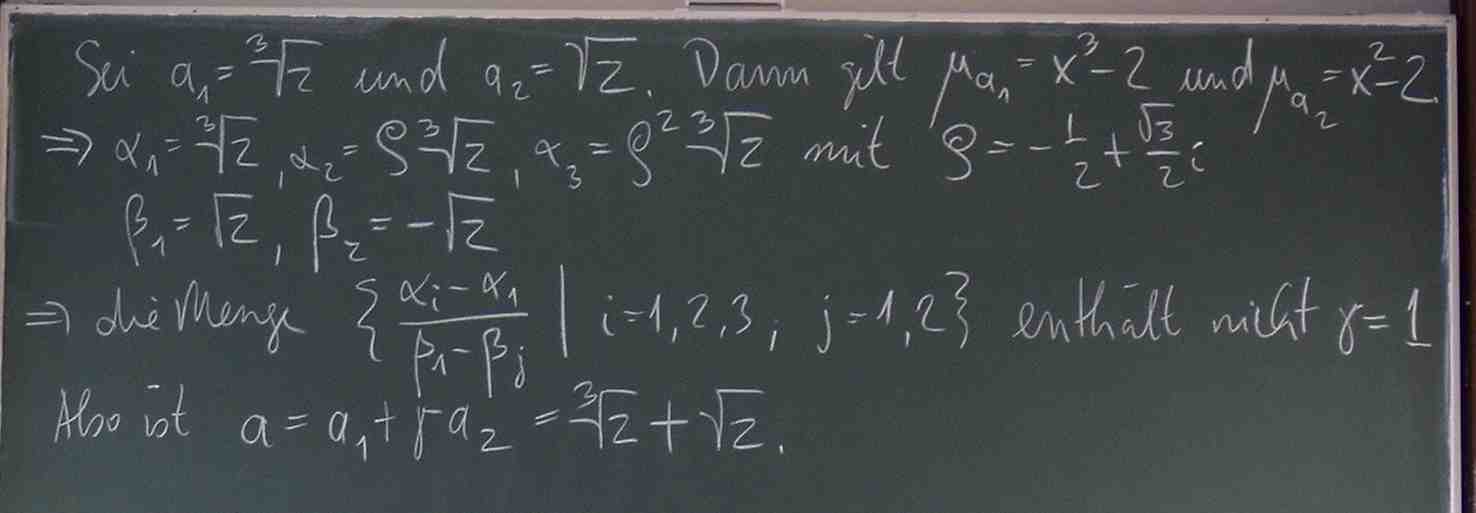 Sei a₁ = ∛2 und a₂ = √2. Dann gilt μ_{a₁} = x³-2 und μ_{a₂} = x²-2.
⇒ α₁ = ∛2, α₂ = ρ∛2, α₃ = ρ²∛2 mit ρ = -1/2 + √3/2 i
β₁ = √2, β₂ = -√2
⇒ die Menge { (αᵢ - α₁)/(β₁ - βⱼ) | i=1,2,3, j=1,2 } enthält nicht γ = 1
Also ist a = a₁ + γ a₂ = ∛2 + √2.